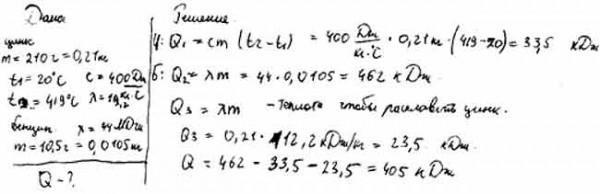 Дано
цинк
m = 210 г = 0,21 кг
t1 = 20°C c = 400 Дж/кг·°C
t2 = 419°C λ =
бензин λ = 44 МДж
m = 10,5 г = 0,0105 кг
Q - ?
Решение
Ц: Q1 = cm (t2 - t1) = 400 Дж/кг·°C · 0,21 кг · (419 - 20) = 33,5 кДж
б: Q2 = λm = 44 · 0,0105 = 462 кДж
Q3 = λm - теплота чтобы расплавить цинк.
Q3 = 0,21 · 112,2 кДж/кг = 23,5 кДж.
Q = 462 - 33,5 - 23,5 = 405 кДж